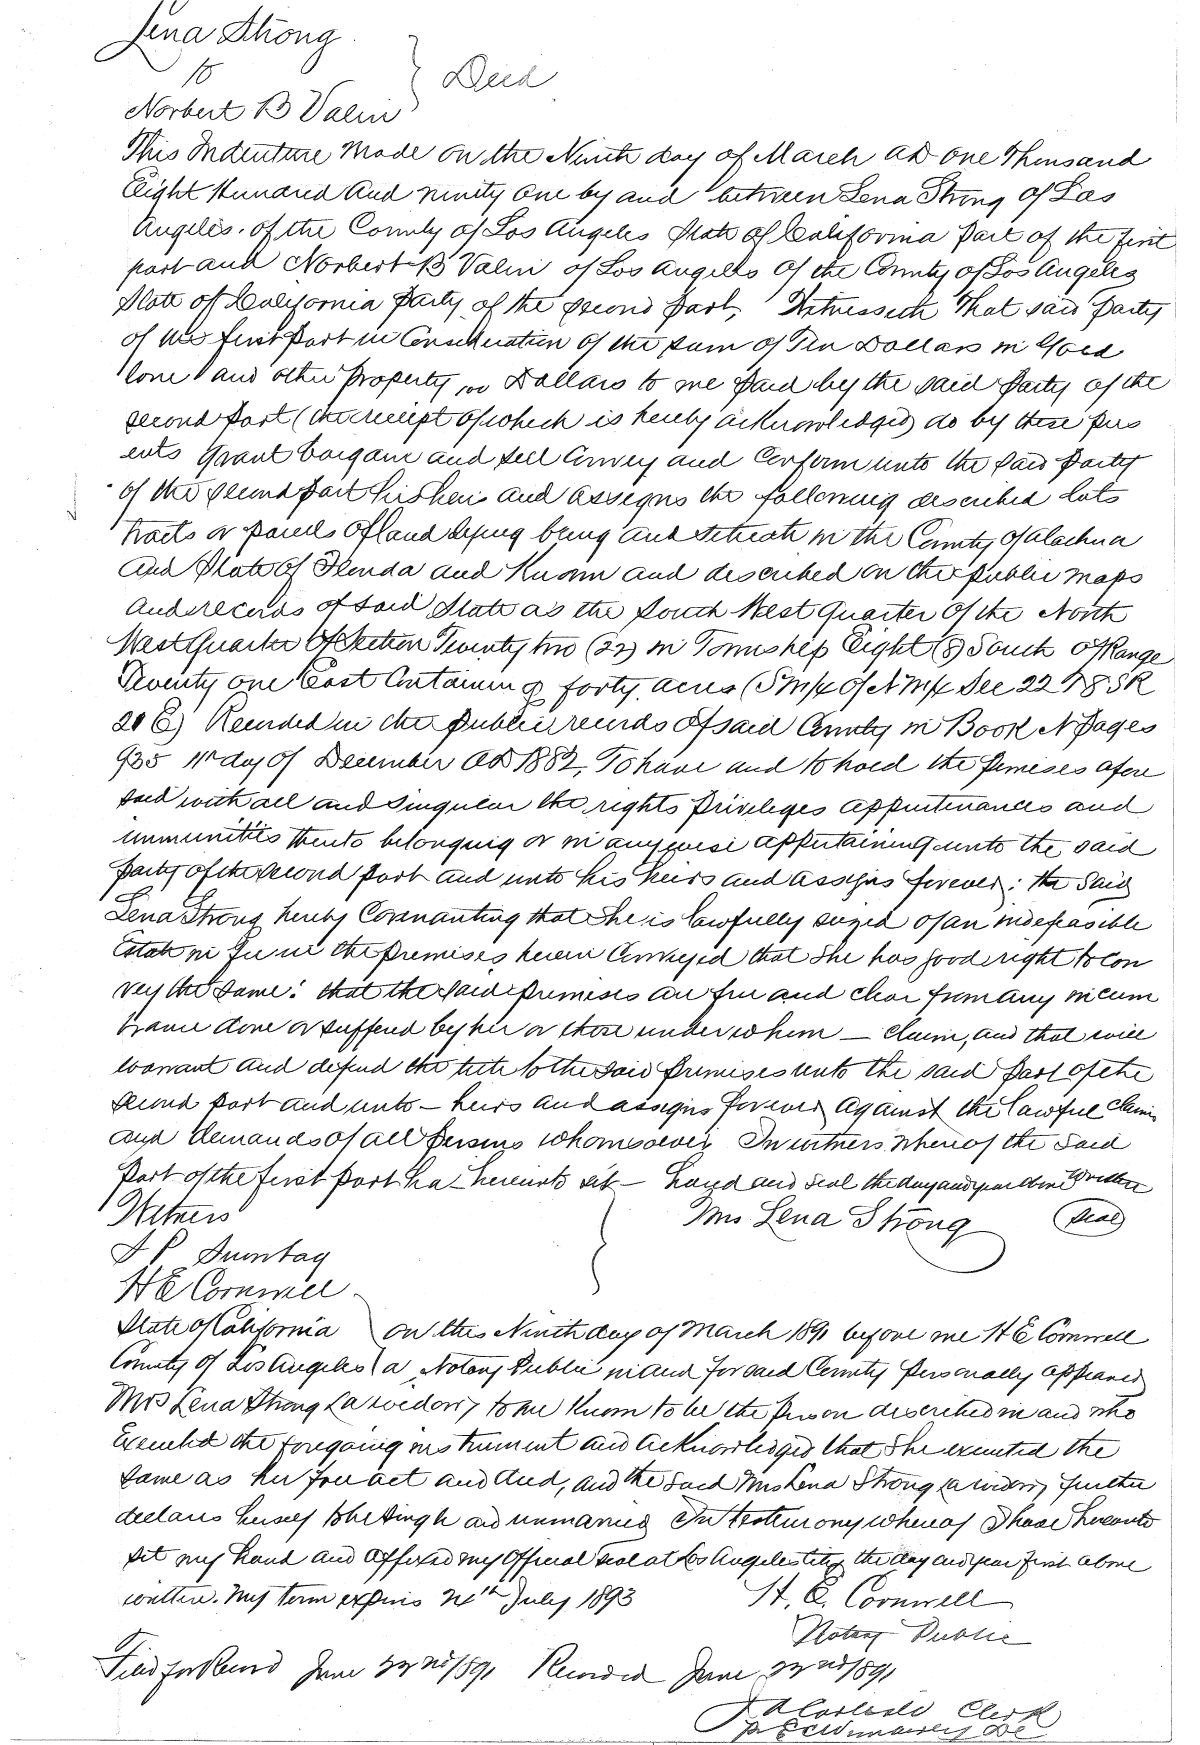 Lena Strong
to
Deed
Norbert B Valin
This Indenture Made on the Ninth day of March AD one Thousand
Eight Hundred And ninety one by and between Lena Strong of Los
Angeles. of the County of Los Angeles State of California Part of the first
part and Norbert B Valin of Los Angeles of the County of Los Angeles
State of California Party of the second part, Witnesseth That said Party
of the first Part in Consideration of the sum of Ten Dollars in Gold
Coin and other Property Dollars to me paid by the said Party of the
second Part (the receipt of which is hereby acknowledged) do by these pres
ents Grant bargain and sell Convey and Confirm unto the said Party
of the second part his heirs and assigns the following described lots
tracts or parcels of land lying being and situate in the County of Alachua
and State of Florida and Known and described on the public maps
and records of said State as the South West Quarter of the North
West Quarter of Section Twenty two (22) in Township Eight (8) South of Range
Twenty one East Containing forty acres (SW¼ of NW¼ Sec 22 T8 SR
E) Recorded in the public records of said County in Book N Pages
935 day of December AD 1882, To have and to hold the premises afore
said with all and singular the rights privileges appurtenances and
immunities thereto belonging or in anywise appertaining unto the said
party of the second part and unto his heirs and assigns forever: the said
Lena Strong hereby Covenanting that she is lawfully seized of an indefeasible
Estate in fee in the premises herein Conveyed that she has good right to con
vey the same: that the said premises are free and clear from any incum
brance done or suffered by her or those under whom — claim, and that will
warrant and defend the title to the said premises unto the said part of the
second part and unto — heirs and assigns forever against the lawful claims
and demands of all persons whomsoever In witness whereof the said
Part of the first part ha— hereunto set — hand and seal the day and year above written
Witness
Mrs Lena Strong (Seal)
J P Sumtag
H E Cornwell
State of California on this Ninth day of March 1891 before me H E Cornwell
County of Los Angeles a Notary Public in and for said County personally appeared
Mrs Lena Strong (a widow) to me Known to be the Person described in and who
Executed the foregoing instrument and acknowledged that she executed the
same as her free act and deed, and the said Mrs Lena Strong (a widow) further
declares herself to be single and unmarried In testimony whereof I have hereunto
set my hand and affixed my official seal at Los Angeles City the day and year first above
written. My term expires July 1893
H. E. Cornwell
Notary Public
Filed for Record June 22nd/891 Recorded June 22nd/891
Clerk
DC